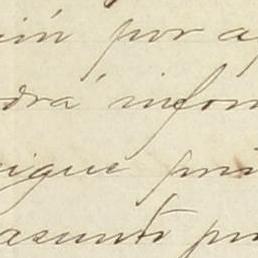 ión por a
drá infor
sigue pri
asunto pr